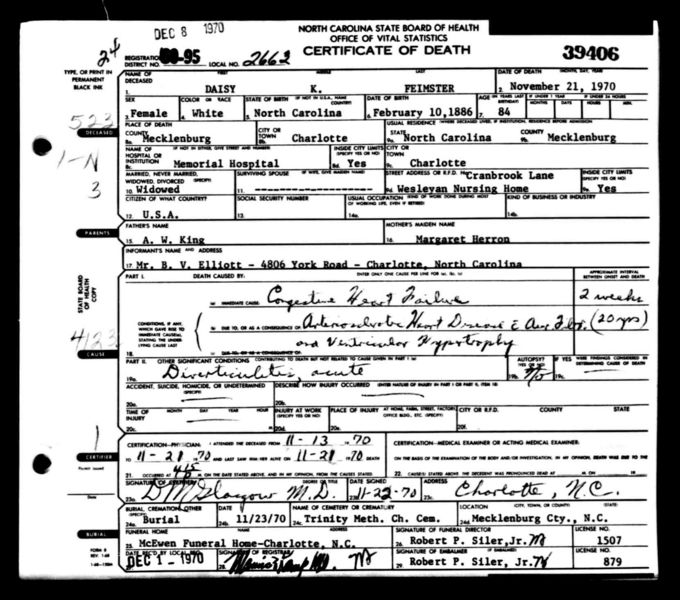 DEC 8 1970
NORTH CAROLINA STATE BOARD OF HEALTH
OFFICE OF VITAL STATISTICS
CERTIFICATE OF DEATH
39406
24
REGISTRATION DISTRICT NO. 95 LOCAL NO. 2662
TYPE, OR PRINT IN PERMANENT BLACK INK
NAME OF DECEASED FIRST MIDDLE LAST DATE OF DEATH MONTH, DAY, YEAR
1. DAISY K. FEIMSTER 2. November 21, 1970
SEX COLOR OR RACE STATE OF BIRTH (IF NOT IN U.S.A., NAME COUNTRY) DATE OF BIRTH AGE (IN YEARS LAST BIRTHDAY) IF UNDER 1 YEAR IF UNDER 24 HOURS
MONTHS DAYS HOURS MIN.
3. Female 4. White 5. North Carolina 6. February 10, 1886 7. 84
523
DECEASED
PLACE OF DEATH USUAL RESIDENCE (WHERE DECEASED LIVED, IF INSTITUTION, RESIDENCE BEFORE ADMISSION)
COUNTY CITY OR TOWN STATE COUNTY
8a. Mecklenburg Charlotte North Carolina 9b. Mecklenburg
1-N
NAME OF HOSPITAL OR INSTITUTION (IF NOT IN EITHER, GIVE STREET AND NUMBER) INSIDE CITY LIMITS (SPECIFY YES OR NO) CITY OR TOWN
8c. Memorial Hospital 8d. Yes 9c. Charlotte
3
MARRIED, NEVER MARRIED, WIDOWED, DIVORCED (SPECIFY) SURVIVING SPOUSE (IF WIFE, GIVE MAIDEN NAME) STREET ADDRESS OR R.F.D. NO. Cranbrook Lane INSIDE CITY LIMITS (SPECIFY YES OR NO)
10. Widowed 11. ---------------- 9d Wesleyan Nursing Home 9e. Yes
CITIZEN OF WHAT COUNTRY? SOCIAL SECURITY NUMBER USUAL OCCUPATION (KIND OF WORK DONE DURING MOST OF WORKING LIFE, EVEN IF RETIRED) KIND OF BUSINESS OR INDUSTRY
12. U.S.A. 13. 14a. 14b.
PARENTS
FATHER'S NAME MOTHER'S MAIDEN NAME
15. A. W. King 16. Margaret Herron
INFORMANT'S NAME AND ADDRESS
17. Mr. B. V. Elliott - 4806 York Road - Charlotte, North Carolina
STATE BOARD OF HEALTH COPY
PART I. DEATH CAUSED BY: ENTER ONLY ONE CAUSE PER LINE FOR (a), (b), AND (c) APPROXIMATE INTERVAL BETWEEN ONSET AND DEATH
(a) IMMEDIATE CAUSE: Congestive Heart Failure 2 weeks
CONDITIONS, IF ANY, WHICH GAVE RISE TO IMMEDIATE CAUSE(a), STATING THE UNDERLYING CAUSE LAST
DUE TO, OR AS A CONSEQUENCE OF: Arteriosclerotic Heart Disease (20 yrs)
and Ventricular Hypertrophy
18. DUE TO, OR AS A CONSEQUENCE OF:
4123
CAUSE
PART II. OTHER SIGNIFICANT CONDITIONS CONTRIBUTING TO DEATH BUT NOT RELATED TO CAUSE GIVEN IN PART I (a) AUTOPSY? (YES OR NO) IF YES WERE FINDINGS CONSIDERED IN DETERMINING CAUSE OF DEATH
19a. Diverticulitis, acute 19b.
ACCIDENT, SUICIDE, HOMICIDE, OR UNDETERMINED (SPECIFY) DESCRIBE HOW INJURY OCCURRED (ENTER NATURE OF INJURY IN PART I OR PART II, ITEM 18)
20a. 20b.
TIME OF INJURY MONTH DAY YEAR HOUR INJURY AT WORK (SPECIFY YES OR NO) PLACE OF INJURY AT HOME, FARM, STREET, FACTORY, OFFICE BLDG., ETC. (SPECIFY) CITY OR R.F.D. COUNTY STATE
20c. 20d. 20e. 20f.
1
CERTIFIER
CERTIFICATION—PHYSICIAN: I ATTENDED THE DECEASED FROM 11-13 1970 CERTIFICATION—MEDICAL EXAMINER OR ACTING MEDICAL EXAMINER:
TO 11-21 1970 AND LAST SAW HIM/HER ALIVE ON 11-21 1970 DEATH ON THE BASIS OF THE EXAMINATION OF THE BODY AND/OR INVESTIGATION, IN MY OPINION, DEATH WAS DUE TO
21. OCCURRED AT 415 M ON THE DATE STATED ABOVE, AND IN MY OPINION, FROM THE CAUSES STATED 22. CAUSE(S) STATED ABOVE. THE DECEDENT WAS PRONOUNCED DEAD AT M ON 19
SIGNATURE OF CERTIFIER DEGREE OR TITLE DATE SIGNED ADDRESS
23a. D M Glasgow M.D. 11-22-70 Charlotte, N.C.
BURIAL
BURIAL, CREMATION, OTHER (SPECIFY) DATE NAME OF CEMETERY OR CREMATORY LOCATION (CITY, TOWN, OR COUNTY) (STATE)
Burial 24b. 11/23/70 Trinity Meth. Ch. Cem. Mecklenburg Cty., N.C.
FUNERAL HOME SIGNATURE OF FUNERAL DIRECTOR LICENSE NO.
25. McEwen Funeral Home-Charlotte, N.C. 26. Robert P. Siler, Jr. 1507
FORM 8
REV. 1-68
DATE REC'D BY LOCAL REG. SIGNATURE OF REGISTRAR SIGNATURE OF EMBALMER LICENSE NO.
DEC 1 - 1970 28. 29. Robert P. Siler, Jr. 879